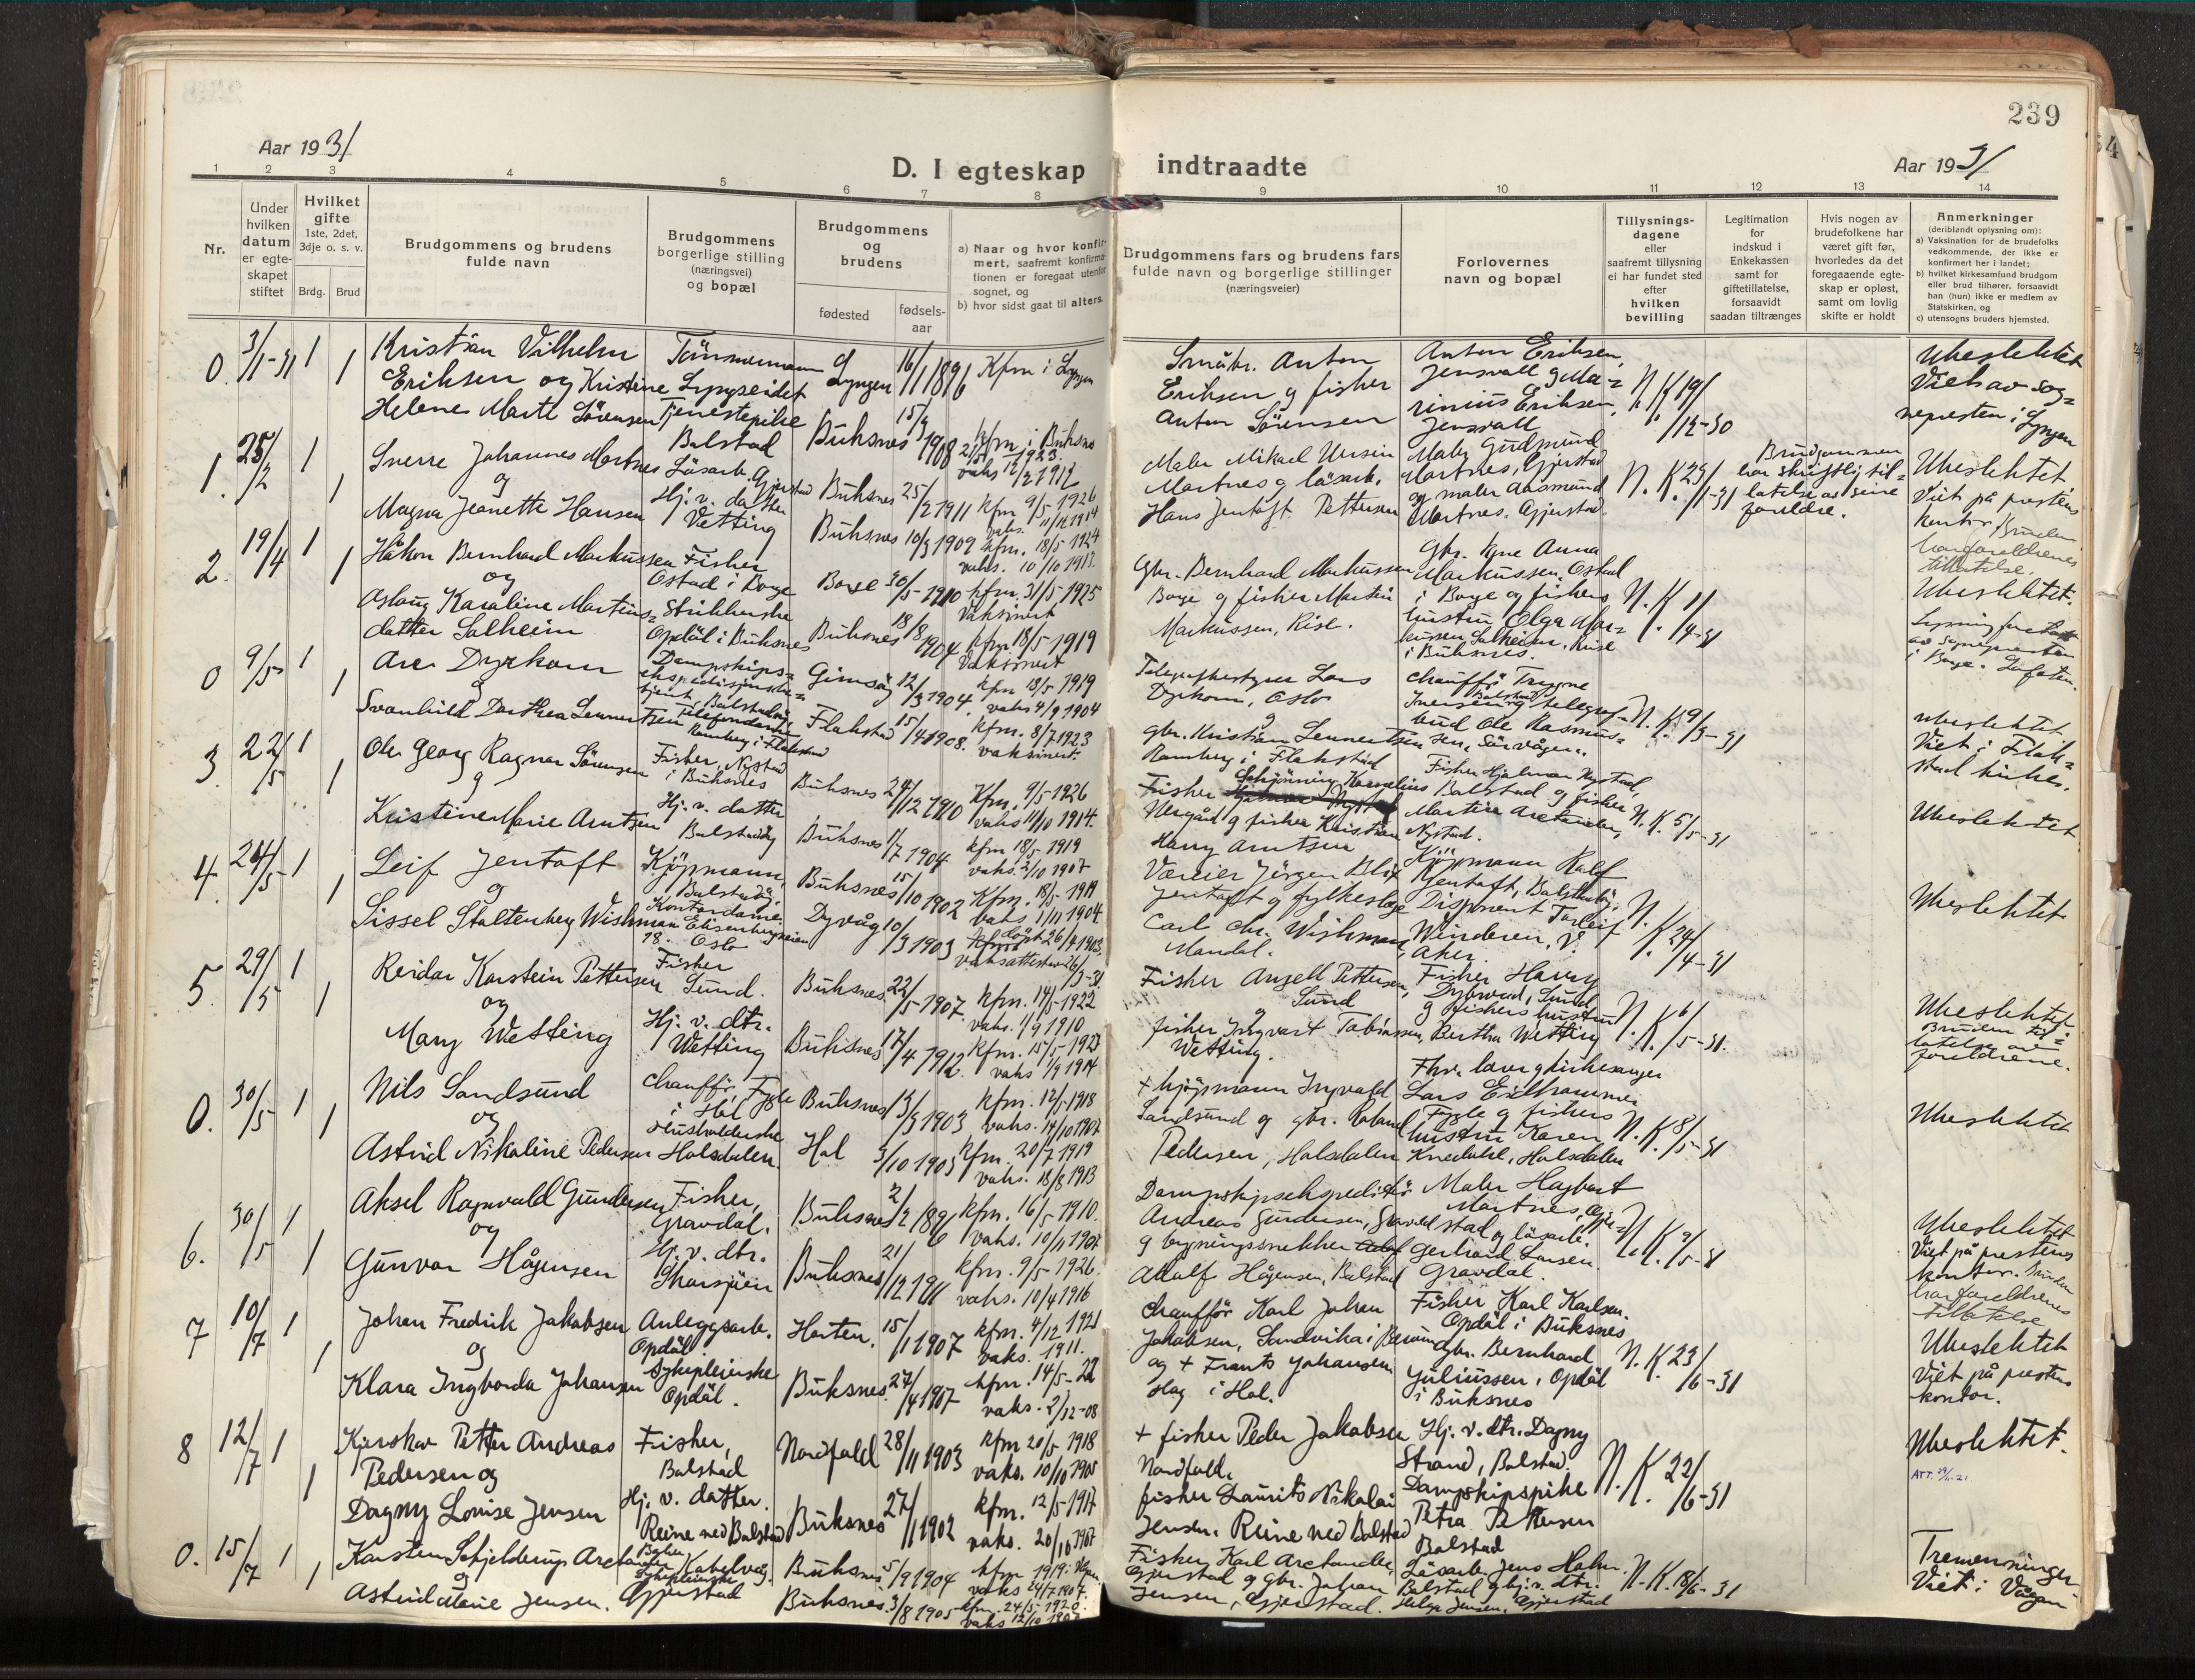 239
Aar 1931
D. I egteskap indtraadte
Aar 1931
1 2 3 4 5 6 7 8 9 10 11 12 13 14
Nr.
Under hvilken datum er egteskapet stiftet
Hvilket gifte 1ste, 2det, 3dje o. s. v.
Brdg. Brud
Brudgommens og brudens fulde navn
Brudgommens borgerlige stilling (næringsvei) og bopæl
Brudgommens og brudens
fødested
fødsels-aar
a) Naar og hvor konfir-
mert, saafremt konfirma-
tionen er foregaat utenfor
sognet, og
b) hvor sidst gaat til alters.
Brudgommens fars og brudens fars
fulde navn og borgerlige stillinger
(næringsveier)
Forlovernes
navn og bopæl
Tillysnings-
dagene
eller
saafremt tillysning
ei har fundet sted
efter
hvilken
bevilling
Legitimation
for
indskud i
Enkekassen
samt for
giftetillatelse,
forsaavidt
saadan tiltrænges
Hvis nogen av
brudefolkene har
været gift før,
hvorledes da det
foregaaende egte-
skap er opløst,
samt om lovlig
skifte er holdt
Anmerkninger
(deriblandt oplysning om):
a) Vaksination for de brudefolks
vedkommende, der ikke er
konfirmert her i landet;
b) hvilket kirkesamfund brudgom
eller brud tilhører, forsaavidt
han (hun) ikke er medlem av
Statskirken, og
c) utensogns bruders hjemsted.
0. 3/1-31 1 1
Kristian Vilhelm
Eriksen og Kristine
Helene Marte Sörensen
Tömmermann
Lyngseidet
Tjenestepike
Balstad
Lyngen 16/1 1896 Kfm i Lyngen
Buksnes 15/9 1908
Småbr. Anton
Eriksen g fisker
Anton Sörensen
Anton Eriksen,
Jensvoll g Ma-
rinius Eriksen,
Jensvoll
N. K. 19/12-30
Ubeslektet
Viet av sog-
nepresten i Lyngen
1. 25/2 1 1
Sverre Johannes Mortnes
og
Magna Jeanette Hansen
Lösarb. Gjerstad
Hj. v. datter
Vetting
Buksnes 25/2 1911 kfm 9/5 1926
Buksnes 10/3 1909 kfm. 18/5 1924
vaks. 10/10 1913.
Maler Mikael Ursin
Mortnes g lösarb.
Hans Jentoft Pettersen
Maler Gudmund
Mortnes, Gjerstad
og maler Aasmund
Mortnes. Gjerstad.
N. K. 23/1-31
Brudgommen
har skriftlig til-
latelse av sine
foreldre.
Ubeslektet
Viet på prestens
kontor. Bruden
har foreldrenes
tillatelse.
2. 19/4 1 1
Håkon Bernhard Markussen
og
Aslaug Karoline Martins-
datter Solheim
Fisker
Ostad i Borge
Strikkerske
Opdöl i Buksnes
Borge 30/5-1910 kfm. 31/5-1925
Vaksinert
Buksnes 18/8 1904 kfm. 18/5-1919
Vaksinert
Gbr. Bernhard Markussen
Borge g fisker Martin
Markussen, Rise.
Gbr. kone Anna
Markussen, Ostad
i Borge og fiskers
hustru Olga Mar-
kussen Solheim, Rise
i Buksnes.
N. K. 1/4-31
Ubeslektet.
Lysning foretatt
av sognepresten
i Borge. Lofoten.
0 9/5 1 1
Are Dyrkorn
g
Svanhild Dorthea Lennertsen
Dampskips-
ekspedisjonsbe-
tjent, Balstadöy
Telefondame
Ramberg i Flakstad
Gimsöy 12/3 1904 kfm 18/5-1919
vaks 4/9 1904
Flakstad 15/4 1908. kfm. 8/7 1923
vaksinert.
Telegrafbestyrer Lars
Dyrkorn, Oslo
g
gbr. Kristian Lennertsen
Ramberg i Flakstad
chaufför Trygve
Iversen g telegraf-
bud Ole Rasmus-
sen, Sörvågen.
N. K. 9/3-31
Ubeslektet
Viet i Flak-
stad kirke.
3 22/5 1 1
Ole Georg Ragnar Sörensen
g
Kristine Marie Arntsen
Fisker, Nystad
i Buksnes
Hj. v. datter
Balstadöy
Buksnes 24/12 1910 Kfm. 9/5-1926
vaks 11/10 1914.
Buksnes 1/7 1904 kfm 18/5 1919
vaks. 2/10 1907
Fisker Schjönning Kornelius
g fisker Kristian
Harry Arntsen
Fisker Hjalmar Nystad,
Balstad g fisker
Martin Arctander,
Nystad.
N. K. 5/5-31
Ubeslektet
4. 24/5 1 1
Leif Jentoft
og
Sissel Stoltenberg Wishman
Kjöpmann,
Balstadöy.
Kontordame
Eilsenbergveien
18. Oslo
Buksnes 15/10 1902 Kfm. 18/5-1919
vaks 1/11 1904.
Dyvåg 10/3 1903 döpt 26/4 1903.
vaksattester 26/3-31
Væreier Jörgen Blix
Jentoft g fylkeslege
Carl Chr. Wishman,
Mandal.
Kjöpmann Rolf
Jentoft, Balstadöy.
Disponent Torleif
Winderen, V.
Aker.
N. K. 24/4-31
Ubeslektet
5. 29/5 1 1
Reidar Karstein Pettersen
og
Mary Wetting
Fisker
Sund.
Hj. v. dtr.
Wetting
Buksnes 22/5 1907. kfm. 14/5-1922
vaks. 1/9 1910
Buksnes 17/4 1912. kfm. 15/5-1927
vaks 1/9 1914
Fisker Angell Pettersen,
Sund
g
fisker Ingvart Tobiassen,
Wetting.
Fisker Harry
Dybwad, Sund
g fiskers hustru
Bertha Wetting
N. K. 6/5-31.
Ubeslektet
Bruden til-
latelse av
foreldrene.
0. 30/5 1 1
Nils Sandsund
og
Astrid Nikoline Pedersen
chaufför, Fygle
i Hol
Husholderske
Holsdalen.
Buksnes 13/3 1903 kfm. 12/5-1918
vaks. 14/10 1907
Hol 3/10 1903 kfm. 20/7 1919
vaks. 18/8 1913
+ kjöpmann Ingvald
Sandsund og gbr. Roland
Pedersen, Holsdalen
Fhv. lærer g kirkesanger
Lars Eidhammer
Fygle g fiskers
hustru Karen
Knedahl, Holsdalen
N. K. 8/5-31
Ubeslektet
6. 30/5 1 1
Aksel Ragnvald Gundersen
og
Gunvor Hågensen
Fisker,
Gravdal.
Hj. v. dtr.
Skarsjöen
Buksnes 2/2 1896 kfm. 16/5-1910.
vaks. 10/11 1902
Buksnes 21/12 1911 kfm. 9/5-1926.
vaks. 10/4 1916
Dampskipsekspeditör
Andreas Gundersen, Gravdal
g bygningssnekker
Adolf Hågensen, Balstad
Maler Hagbart
Mortnes, Gjer-
stad og lösarb.
Gerhard Larsen
Gravdal.
N. K. 9/5-31
Ubeslektet
Viet på prestens
kontor. Bruden
har foreldrenes
tillatelse
7 10/7 1 1
Johan Fredrik Jakobsen
og
Klara Ingborda Johansen
Anleggsarb.
Opdöl
Sykepleierske
Opdöl.
Horten. 15/1 1907 kfm. 4/12 1921
vaks. 1911.
Buksnes 27/4 1907 kfm. 14/5-22
vaks. 2/12-08
chaufför Karl Johan
Jakobsen, Sandvika i Bærum
og + Frants Johansen
Hag i Hol.
Fisker Karl Karlsen
Opdöl i Buksnes
gbr. Bernhard
Juliussen, Opdöl
i Buksnes
N. K. 23/6-31
Ubeslektet
Viet på prestens
kontor.
8 12/7 1 1
Kjerskov Petter Andreas
Pedersen og
Dagny Lovise Jensen
Fisker,
Balstad
Hj. v. datter.
Reine ved Balstad
Nordfold 28/11 1903 kfm 20/5 1918
vaks. 10/10 1905
Buksnes 27/11 1902 kfm. 12/5-1917
vaks. 20/10 1907
+ fisker Peder Jakobsen
Nordfold.
fisker Laurits Nikolai
Jensen. Reine ved Balstad
Hj. v. dtr. Dagny
Strand, Balstad.
Dampskipspike
Petra Pettersen
Balstad
N. K. 22/6-31
Ubeslektet.
0. 15/7 1 1
Karsten Schjelderup Arctander
og
Astrid Marie Jensen.
Baker, Kabelvåg.
Sykepleierske
Gjerstad
Buksnes 5/9 1904 kfm 1919.
vaks 24/7 1907.
Buksnes. 3/8 1905 kfm. 24/5 1920
vaks 12/10 1907
Fisker Karl Arctander,
Gjerstad g gbr. Johan
Jensen, Gjerstad.
Lösarb. Jens Holm.
Balstad g hj. v. dtr.
Helga Jensen, Gjerstad
N. K. 18/6-31
Tremenninger
Viet i Vågan